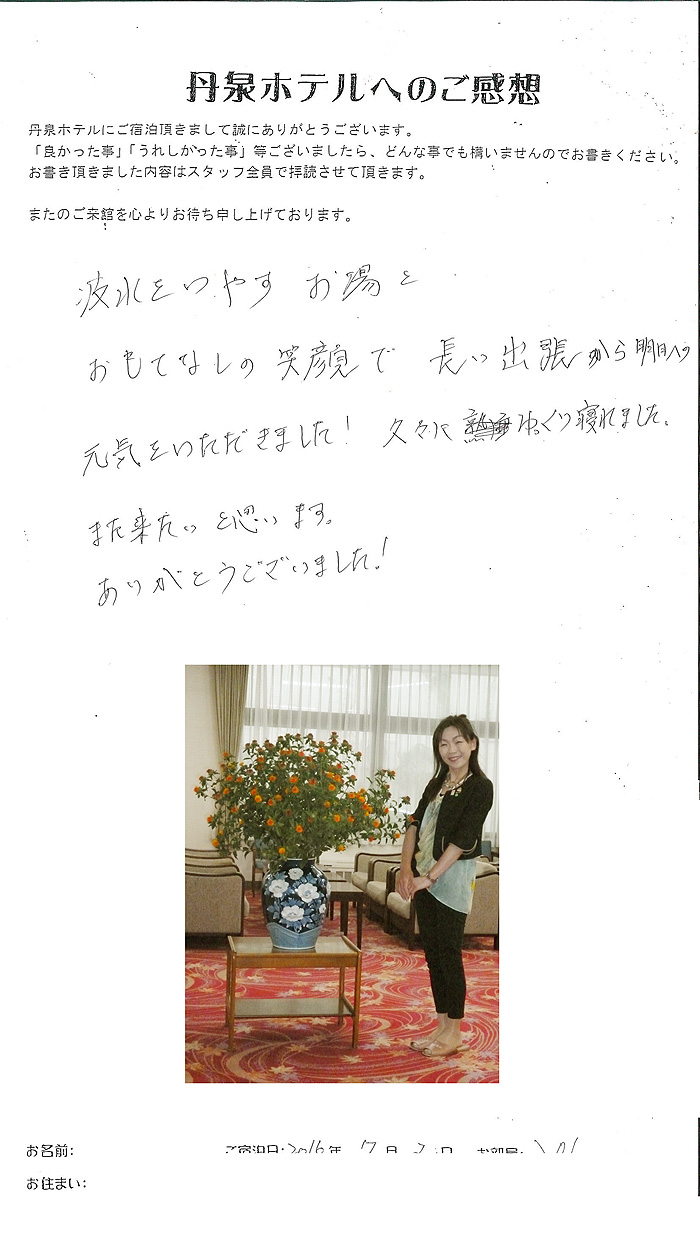 丹泉ホテルへのご感想
丹泉ホテルにご宿泊頂きまして誠にありがとうございます。
「良かった事」「うれしかった事」等ございましたら、どんな事でも構いませんのでお書きください。
お書き頂きました内容はスタッフ全員で拝読させて頂きます。
またのご来館を心よりお待ち申し上げております。
波水をいやす お湯と
おもてなしの笑顔で 長い出張から明日への
元気をいただきました! 久々にゆっくり寝れました。
また来たいと思います。
ありがとうございました!
お名前: ご宿泊日:2016年 7月 日 お部屋:
お住まい: